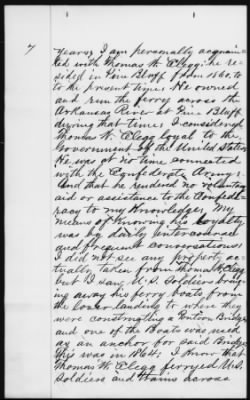 7
years; I am personally acquain-
ted with Thomas W. Clegg; he re-
sided in Pine Bluff from 1860, to
to the present time; He owned
and run the ferry across the
Arkansas River at Pine Bluff
during that time; I considered
Thomas W. Clegg loyal to the
Government of the United States
He was at no time connected
with the Confederate Army;
And that he rendered no voluntary
aid or assistance to the Confed-
racy to my Knowledge; My
means of Knowing his loyalty
was by daily intercourse
and frequent conversations
I did not see any property ac-
tually taken from Thomas W. Clegg
but I saw U.S. Soldiers bring-
ing away his ferry boats from
the lower landing to where they
were constructing a Ponton Bridge
and one of the Boats was used
as an anchor for said Bridge
this was in 1864; I know that
Thomas W. Clegg ferryed U.S.
Soldiers and trains across